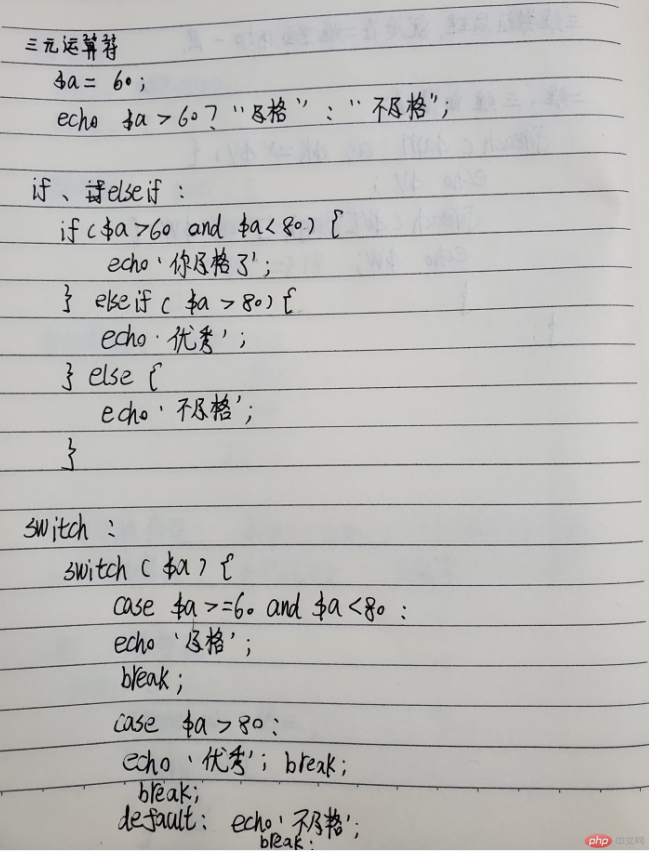 三元运算符
$a = 60;
echo $a > 60 ? "及格" : "不及格";
if、elseif:
if($a>60 and $a<80) {
echo '你及格了';
} elseif($a > 80){
echo '优秀';
} else {
echo '不及格';
}
switch:
switch($a) {
case $a>=60 and $a<80:
echo '及格';
break;
case $a>80:
echo '优秀'; break;
break;
default: echo '不及格';
break;
php 中文网